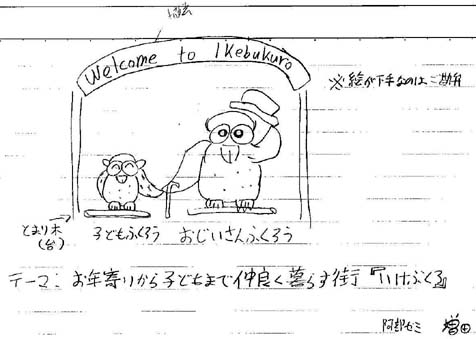 Welcome to IKebukuro
※絵が下手なのはご勘弁
とまり木
(台)
子どもふくろう
おじいさんふくろう
テーマ: お年寄りから子どもまで仲良く暮らす街『いけぶくろ』
阿部ゼミ 増田